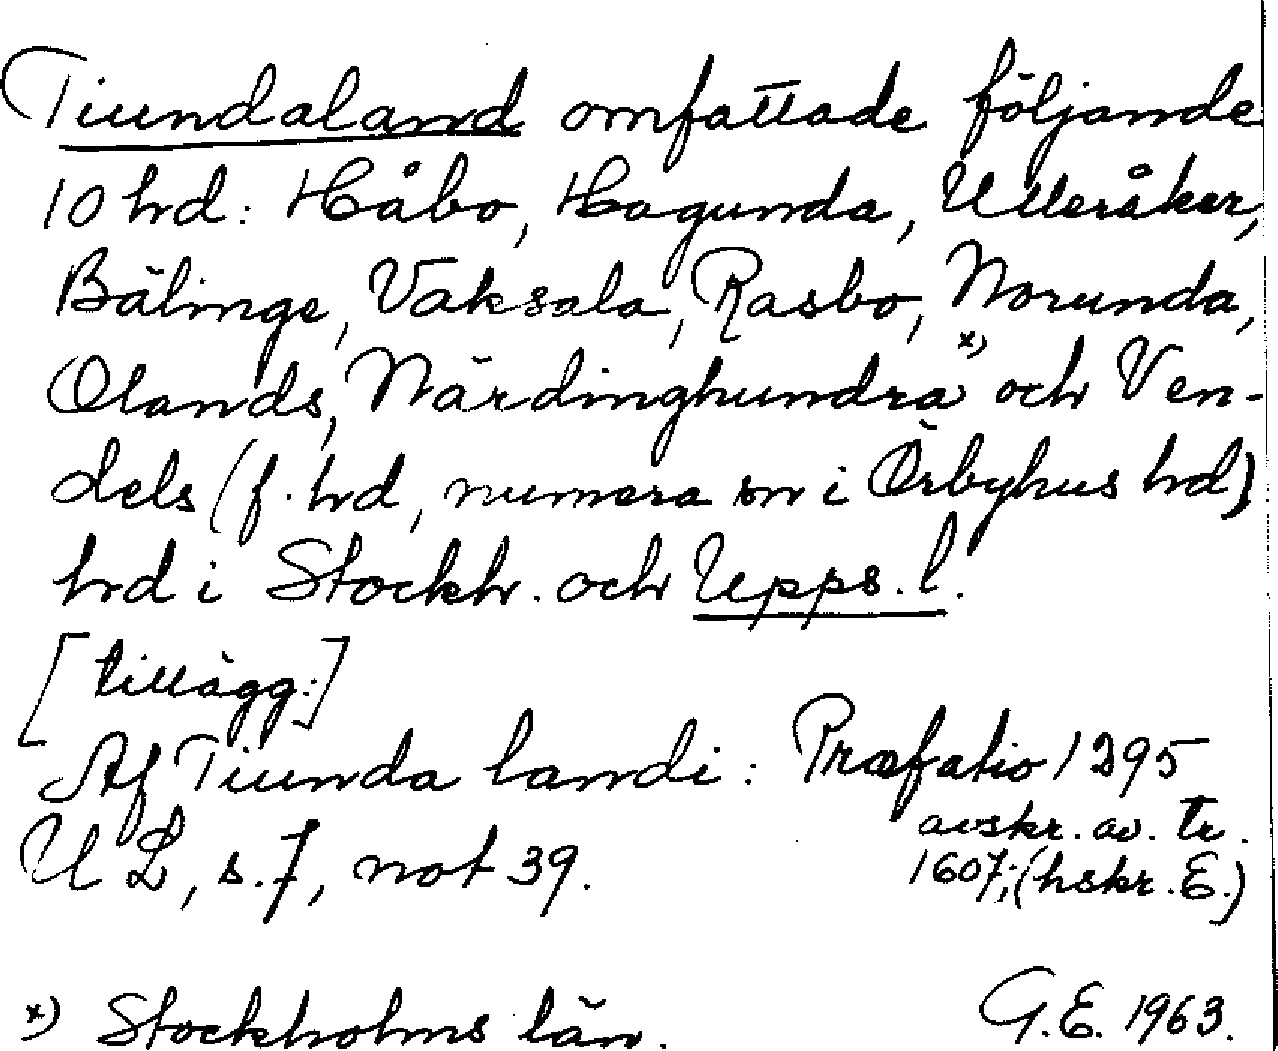 Tiundaland omfattade följande
10 hrd: Håbo, Hagunda, Ulleråker,
Bälinge, Vaksala, Rasbo, Norunda,
Olands, Närdinghundra x) och Ven-
dels (f. hrd, numera sn i Örbyhus hrd)
hrd i Stockh. och Upps. l.
[tillägg:]
Af Tiunda landi: Præfatio 1295
avskr. av. tr.
UL, s. 7, not 39.
1607; (hskr. E.)
x) Stockholms län.
G.E. 1963.